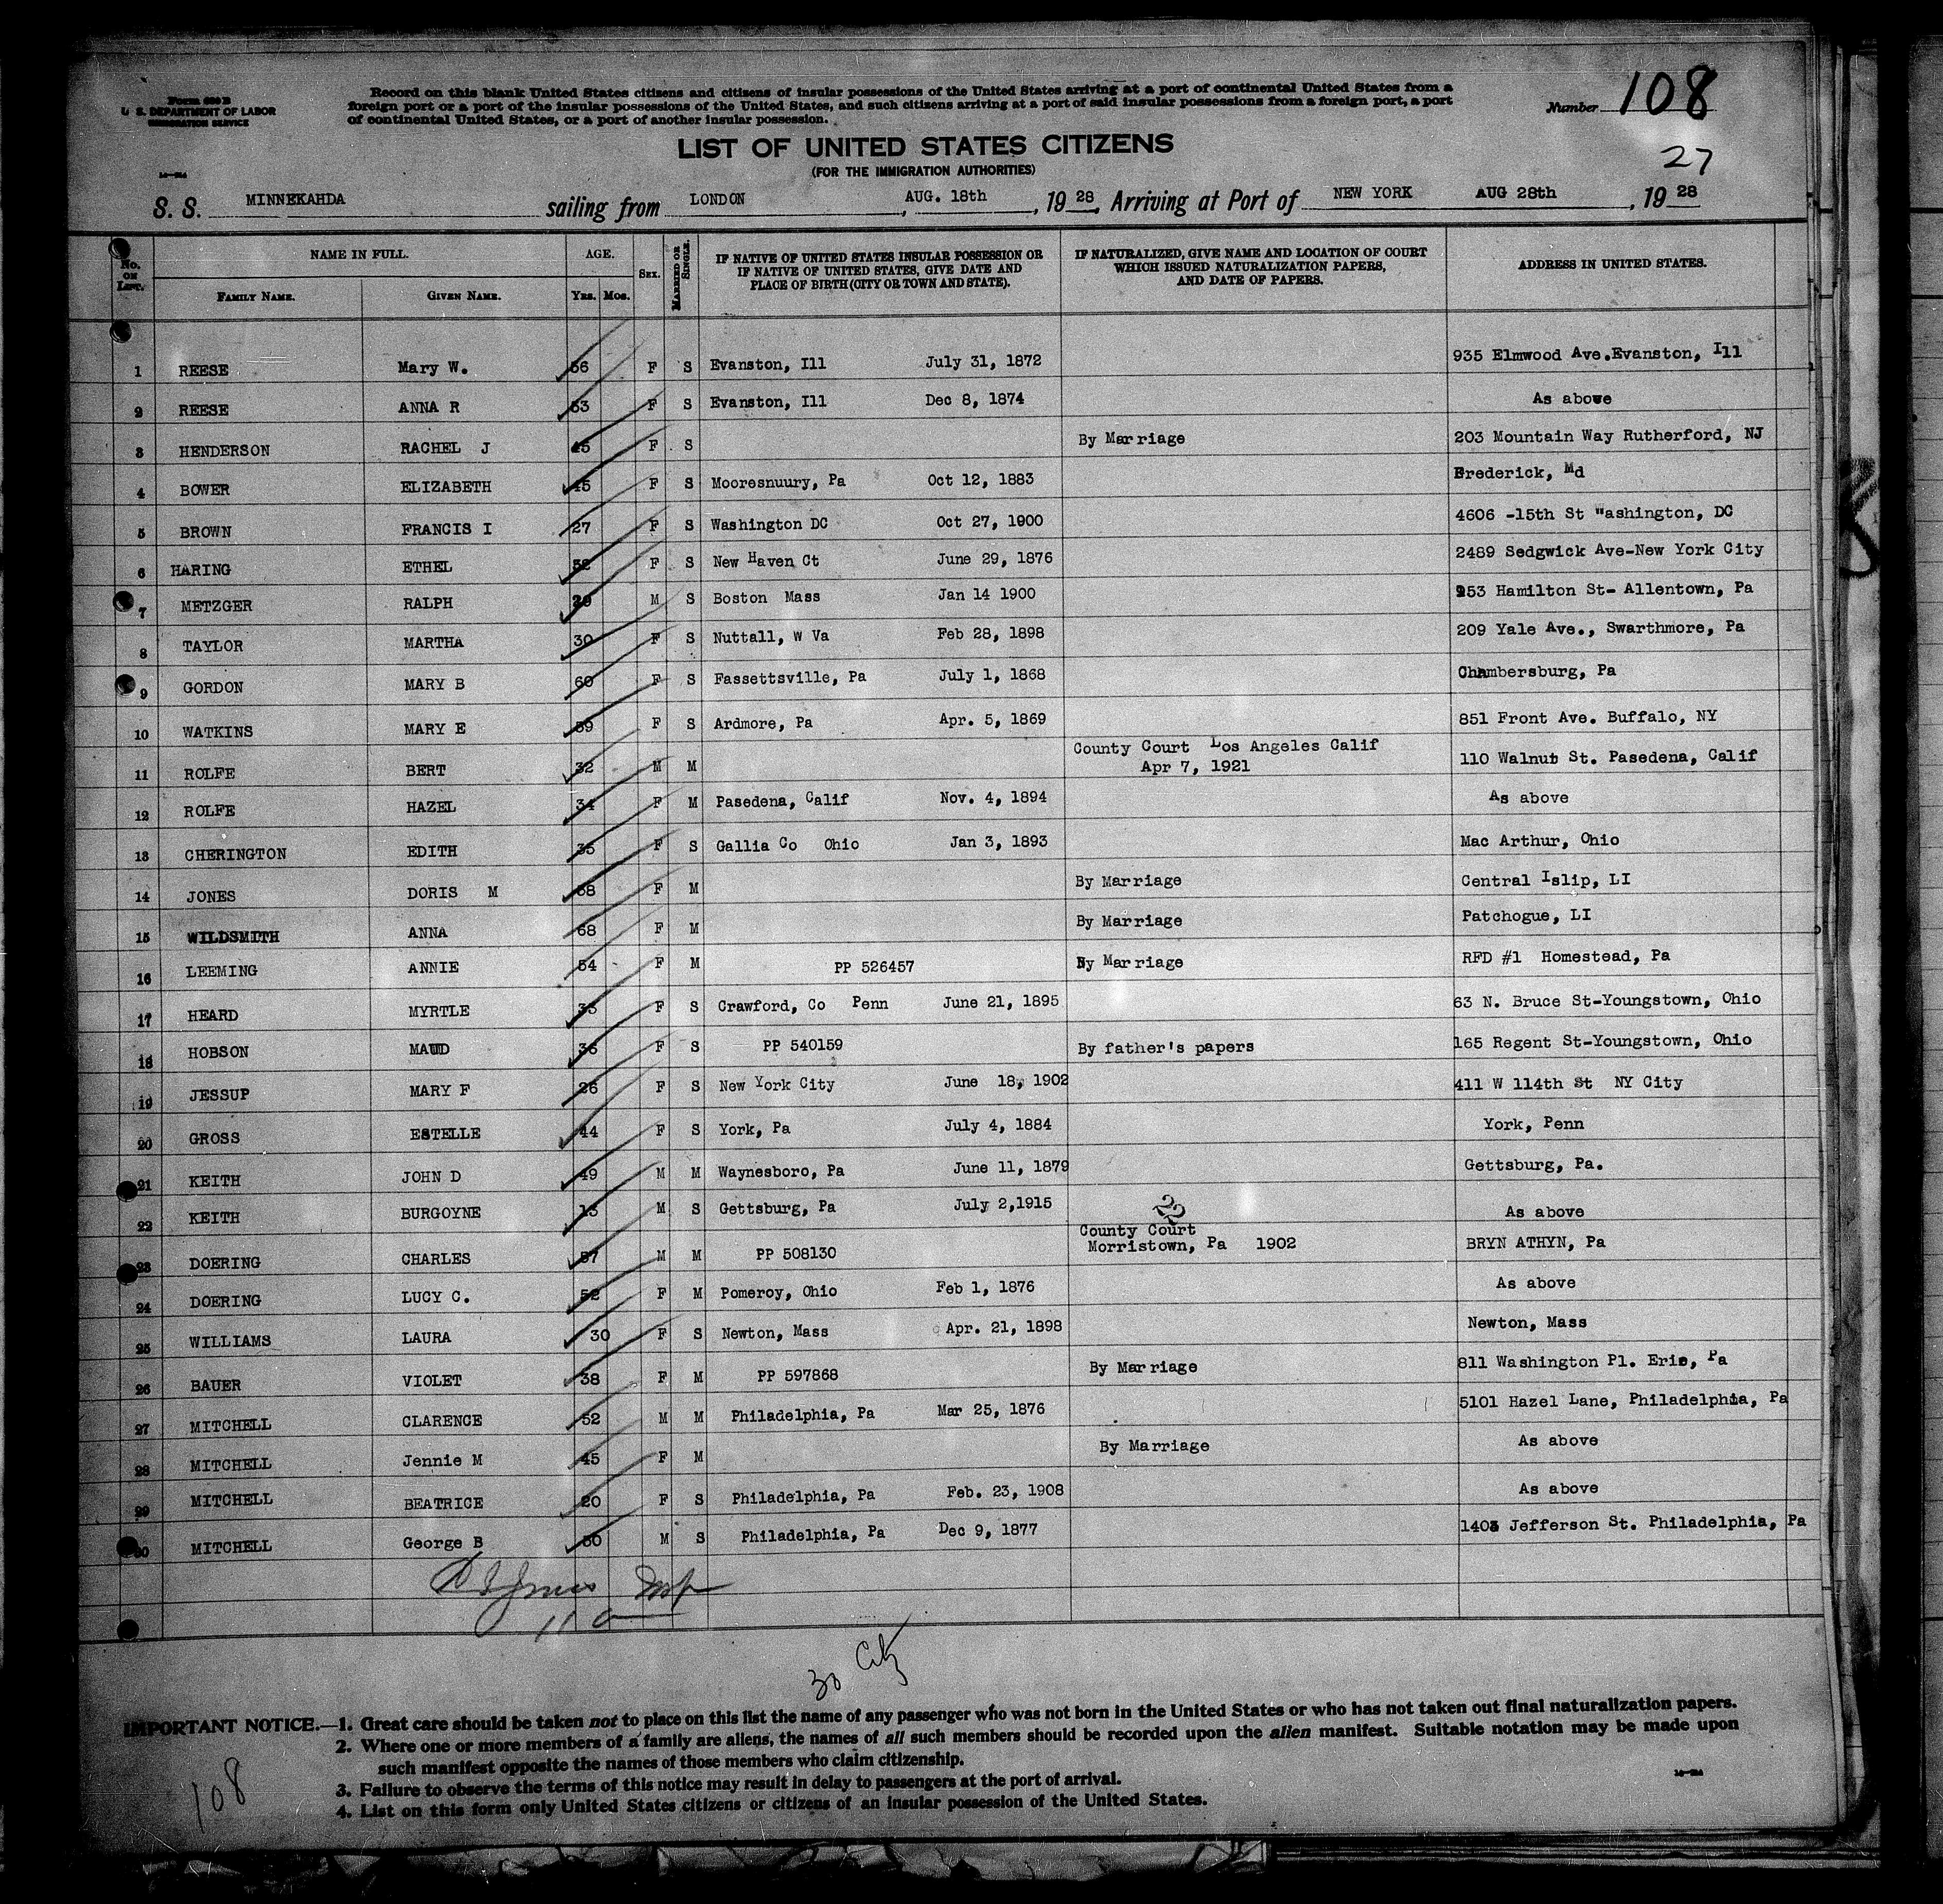 Form 630 B
U. S. DEPARTMENT OF LABOR
IMMIGRATION SERVICE
Record on this blank United States citizens and citizens of insular possessions of the United States arriving at a port of continental United States from a
foreign port or a port of the insular possessions of the United States, and such citizens arriving at a port of said insular possessions from a foreign port, a port
of continental United States, or a port of another insular possession.
Number 108
LIST OF UNITED STATES CITIZENS
(FOR THE IMMIGRATION AUTHORITIES)
27
S. S. MINNEKAHDA sailing from LONDON, AUG. 18th, 19 28, Arriving at Port of NEW YORK AUG 28th, 19 28
No. on List. NAME IN FULL. FAMILY NAME. GIVEN NAME. AGE. YRS. MOS. SEX. MARRIED OR SINGLE. IF NATIVE OF UNITED STATES INSULAR POSSESSION OR IF NATIVE OF UNITED STATES, GIVE DATE AND PLACE OF BIRTH (CITY OR TOWN AND STATE). IF NATURALIZED, GIVE NAME AND LOCATION OF COURT WHICH ISSUED NATURALIZATION PAPERS, AND DATE OF PAPERS. ADDRESS IN UNITED STATES.
1 REESE Mary W. 56 F S Evanston, Ill July 31, 1872 935 Elmwood Ave.Evanston, Ill
2 REESE ANNA R 53 F S Evanston, Ill Dec 8, 1874 As above
3 HENDERSON RACHEL J 45 F S By Marriage 203 Mountain Way Rutherford, NJ
4 BOWER ELIZABETH 45 F S Mooresnuury, Pa Oct 12, 1883 Frederick, Md
5 BROWN FRANCIS I 27 F S Washington DC Oct 27, 1900 4606 -15th St "ashington, DC
6 HARING ETHEL 52 F S New Haven Ct June 29, 1876 2489 Sedgwick Ave-New York City
7 METZGER RALPH M S Boston Mass Jan 14 1900 953 Hamilton St- Allentown, Pa
8 TAYLOR MARTHA 30 F S Nuttall, W Va Feb 28, 1898 209 Yale Ave., Swarthmore, Pa
9 GORDON MARY B 60 F S Fassettsville, Pa July 1, 1868 Chambersburg, Pa
10 WATKINS MARY E 59 F S Ardmore, Pa Apr. 5, 1869 851 Front Ave. Buffalo, NY
11 ROLFE BERT 32 M M County Court Los Angeles Calif Apr 7, 1921 110 Walnut St. Pasedena, Calif
12 ROLFE HAZEL 34 F M Pasedena, Calif Nov. 4, 1894 As above
13 CHERINGTON EDITH 35 F S Gallia Co Ohio Jan 3, 1893 Mac Arthur, Ohio
14 JONES DORIS M 68 F M By Marriage Central Islip, LI
15 WILDSMITH ANNA 68 F M By Marriage Patchogue, LI
16 LEEMING ANNIE 54 F M PP 526457 By Marriage RFD #1 Homestead, Pa
17 HEARD MYRTLE 33 F S Crawford, Co Penn June 21, 1895 63 N. Bruce St-Youngstown, Ohio
18 HOBSON MAUD 36 F S PP 540159 By father's papers 165 Regent St-Youngstown, Ohio
19 JESSUP MARY F 26 F S New York City June 18, 1902 411 W 114th St NY City
20 GROSS ESTELLE 44 F S York, Pa July 4, 1884 York, Penn
21 KEITH JOHN D 49 M M Waynesboro, Pa June 11, 1879 Gettsburg, Pa.
22 KEITH BURGOYNE 13 M S Gettsburg, Pa July 2,1915 As above
23 DOERING CHARLES 57 M M PP 508130 County Court Morristown, Pa 1902 BRYN ATHYN, Pa
24 DOERING LUCY C. 52 F M Pomeroy, Ohio Feb 1, 1876 As above
25 WILLIAMS LAURA 30 F S Newton, Mass Apr. 21, 1898 Newton, Mass
26 BAUER VIOLET 38 F M PP 597868 By Marriage 811 Washington Pl. Erie, Pa
27 MITCHELL CLARENCE 52 M M Philadelphia, Pa Mar 25, 1876 5101 Hazel Lane, Philadelphia, Pa
28 MITCHELL Jennie M 45 F M By Marriage As above
29 MITCHELL BEATRICE 20 F S Philadelphia, Pa Feb. 23, 1908 As above
30 MITCHELL George B 50 M S Philadelphia, Pa Dec 9, 1877 1403 Jefferson St. Philadelphia, Pa
30 City
IMPORTANT NOTICE.—1. Great care should be taken not to place on this list the name of any passenger who was not born in the United States or who has not taken out final naturalization papers.
2. Where one or more members of a family are aliens, the names of all such members should be recorded upon the alien manifest. Suitable notation may be made upon
such manifest opposite the names of those members who claim citizenship.
3. Failure to observe the terms of this notice may result in delay to passengers at the port of arrival.
4. List on this form only United States citizens or citizens of an insular possession of the United States.
108